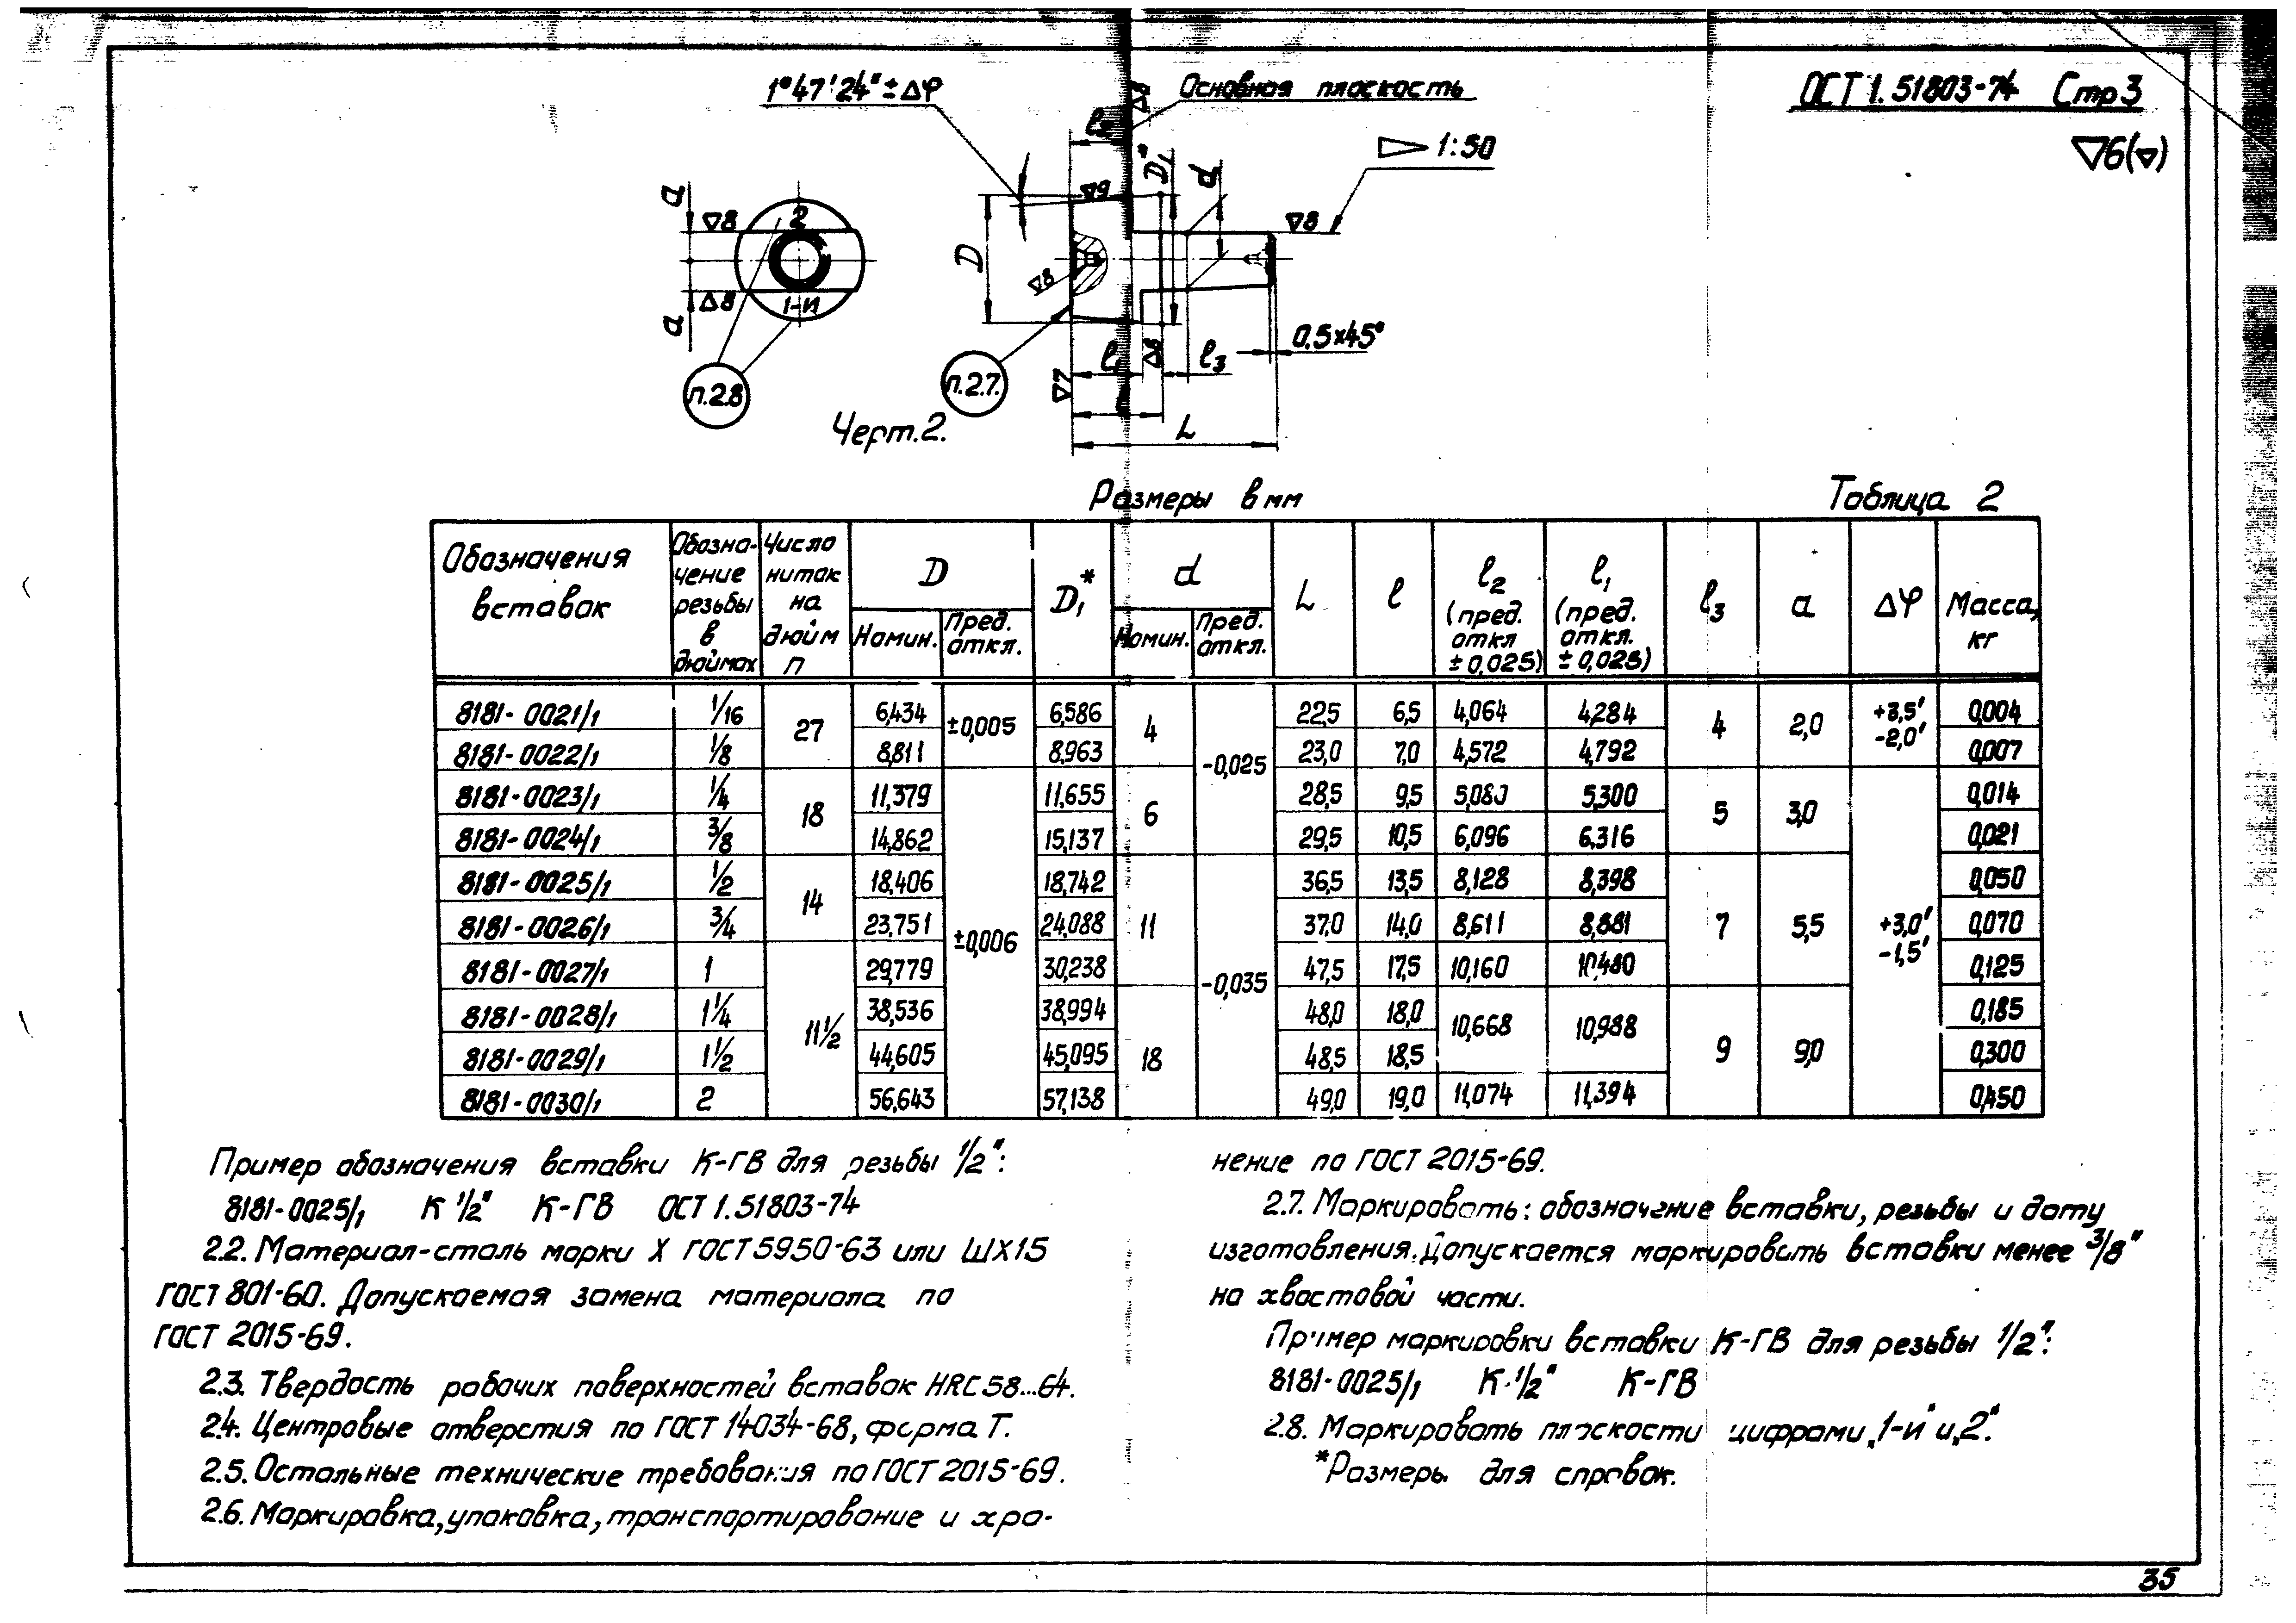 ОСТ 1.51803-74 Стр 3
▽6(▽)
1°47'24"±Δφ
Основная плоскость
▷ 1:50
a
▽8
2
1-И
▽8
a
п.2.8
D
▽9
▽8
l2
▽8
D1*
d
▽8
п.2.7.
▽7
l1
▽8
l3
0,5×45°
l
L
Черт.2.
Размеры в мм
Таблица 2
Обозначения вставок | Обозначение резьбы в дюймах | Число ниток на дюйм п | D Номин. | D Пред. откл. | D1* | d Номин. | d Пред. откл. | L | l | l2 (пред. откл ±0,025) | l1 (пред. откл. ±0,025) | l3 | a | Δφ | Масса, кг
8181-0021/1 | 1/16 | 27 | 6,434 | ±0,005 | 6,586 | 4 | -0,025 | 22,5 | 6,5 | 4,064 | 4,284 | 4 | 2,0 | +3,5' -2,0' | 0,004
8181-0022/1 | 1/8 | 8,811 | 8,963 | 23,0 | 7,0 | 4,572 | 4,792 | 0,007
8181-0023/1 | 1/4 | 18 | 11,379 | ±0,006 | 11,655 | 6 | 28,5 | 9,5 | 5,080 | 5,300 | 5 | 3,0 | +3,0' -1,5' | 0,014
8181-0024/1 | 3/8 | 14,862 | 15,137 | 29,5 | 10,5 | 6,096 | 6,316 | 0,021
8181-0025/1 | 1/2 | 14 | 18,406 | 18,742 | 11 | -0,035 | 36,5 | 13,5 | 8,128 | 8,398 | 7 | 5,5 | 0,050
8181-0026/1 | 3/4 | 23,751 | 24,088 | 37,0 | 14,0 | 8,611 | 8,881 | 0,070
8181-0027/1 | 1 | 11 1/2 | 29,779 | 30,238 | 47,5 | 17,5 | 10,160 | 10,480 | 0,125
8181-0028/1 | 1 1/4 | 38,536 | 38,994 | 18 | 48,0 | 18,0 | 10,668 | 10,988 | 9 | 9,0 | 0,185
8181-0029/1 | 1 1/2 | 44,605 | 45,095 | 48,5 | 18,5 | 0,300
8181-0030/1 | 2 | 56,643 | 57,138 | 49,0 | 19,0 | 11,074 | 11,394 | 0,450
Пример обозначения вставки К-ГВ для резьбы 1/2":
8181-0025/1 К 1/2" К-ГВ ОСТ 1.51803-74
2.2. Материал-сталь марки Х ГОСТ 5950-63 или ШХ15
ГОСТ 801-60. Допускаемая замена материала по
ГОСТ 2015-69.
2.3. Твердость рабочих поверхностей вставок HRC 58...64.
2.4. Центровые отверстия по ГОСТ 14034-68, форма Т.
2.5. Остальные технические требования по ГОСТ 2015-69.
2.6. Маркировка, упаковка, транспортирование и хра-
нение по ГОСТ 2015-69.
2.7. Маркировать: обозначение вставки, резьбы и дату
изготовления. Допускается маркировать вставки менее 3/8"
на хвостовой части.
Пример маркировки вставки К-ГВ для резьбы 1/2":
8181-0025/1 К 1/2" К-ГВ
2.8. Маркировать плоскости цифрами „1-И" и „2".
*Размеры для справок.
35